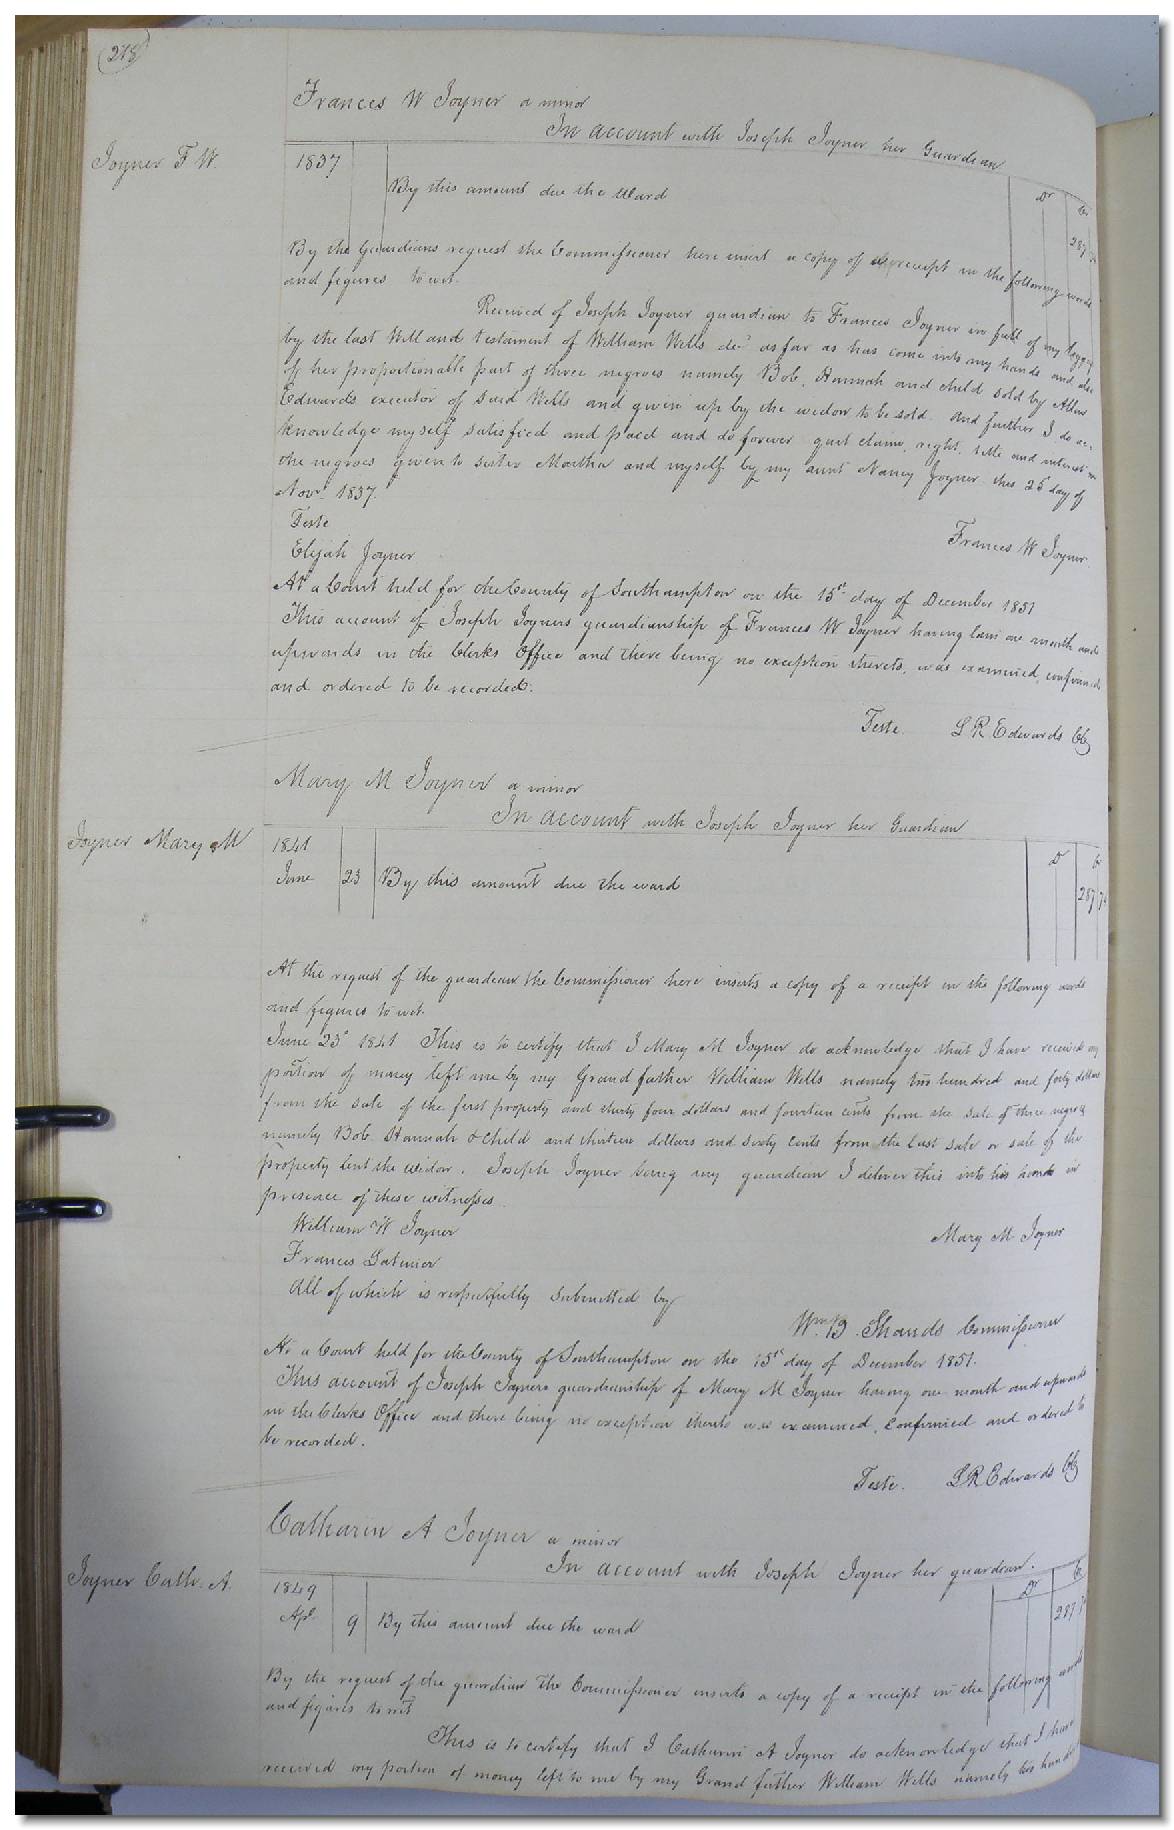 278
Frances W Joyner a minor
In account with Joseph Joyner her Guardian
Joyner F W.
1837
Dr Cr
By this amount due the Ward 287
By the Guardians request the Commissioner here insert a copy of receipt in the following words
and figures to wit.
Received of Joseph Joyner guardian to Frances Joyner in full of my legacy
by the last Will and testament of William Wells decd as far as has come into my hands and also
of her proportionable part of three negroes namely Bob, Hannah and child sold by Allen
Edwards executor of said Wells and given up by the widow to be sold. And further I do ac-
knowledge myself satisfied and paid and do forever quit claim, right, title and interest in
the negroes given to sister Martha and myself by my aunt Nancy Joyner this 25 day of
Novr 1837.
Teste
Frances W Joyner.
Elijah Joyner
At a Court held for the County of Southampton on the 15th day of December 1851
This account of Joseph Joyners guardianship of Frances W Joyner having lain one month and
upwards in the Clerks Office and there being no exception thereto, was examined, confirmed
and ordered to be recorded.
Teste. L R Edwards CC
Mary M Joyner a minor
In account with Joseph Joyner her Guardian
Joyner Mary M
1841
Dr Cr
June 23 By this amount due the ward 287 74
At the request of the guardian the Commissioner here inserts a copy of a receipt in the following words
and figures to wit.
June 23d 1841 This is to certify that I Mary M Joyner do acknowledge that I have received my
portion of money left me by my Grand father William Wells namely two hundred and forty dollars
from the sale of the first property and thirty four dollars and fourteen cents from the sale of three negroes
namely Bob Hannah & child and thirteen dollars and sixty cents from the last sale or sale of the
property lent the widow. Joseph Joyner being my guardian I deliver this into his hands in
presence of these witnesses
William W Joyner
Mary M Joyner
Frances Latimer
All of which is respectfully submitted by
Wm B. Shands Commissioner
At a Court held for the County of Southampton on the 15th day of December 1851.
This account of Joseph Joyners guardianship of Mary M Joyner having one month and upwards
in the Clerks Office and there being no exception thereto was examined, confirmed and ordered to
be recorded.
Teste. L R Edwards CC
Catharin A Joyner a minor
In account with Joseph Joyner her guardian.
Joyner Cath. A.
1849
Dr Cr
Apl. 9 By this amount due the ward 287
By the request of the guardian the Commissioner inserts a copy of a receipt in the following words
and figures to wit
This is to certify that I Catharin A Joyner do acknowledge that I have
received my portion of money left to me by my Grand father William Wells namely two hundred